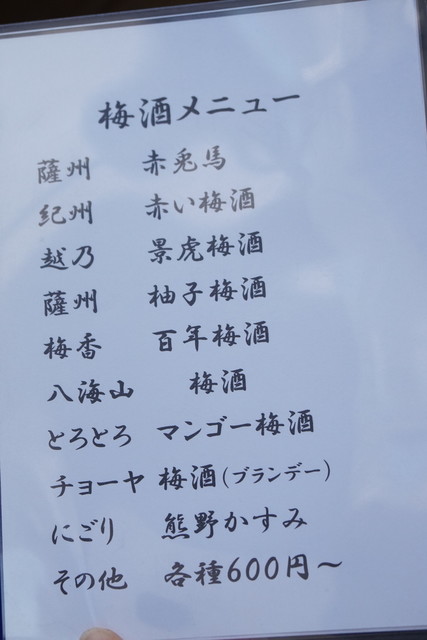 梅酒メニュー
薩州 赤兎馬
紀州 赤い梅酒
越乃 景虎梅酒
薩州 柚子梅酒
梅香 百年梅酒
八海山 梅酒
とろとろ マンゴー梅酒
チョーヤ 梅酒(ブランデー)
にごり 熊野かすみ
その他 各種600円～